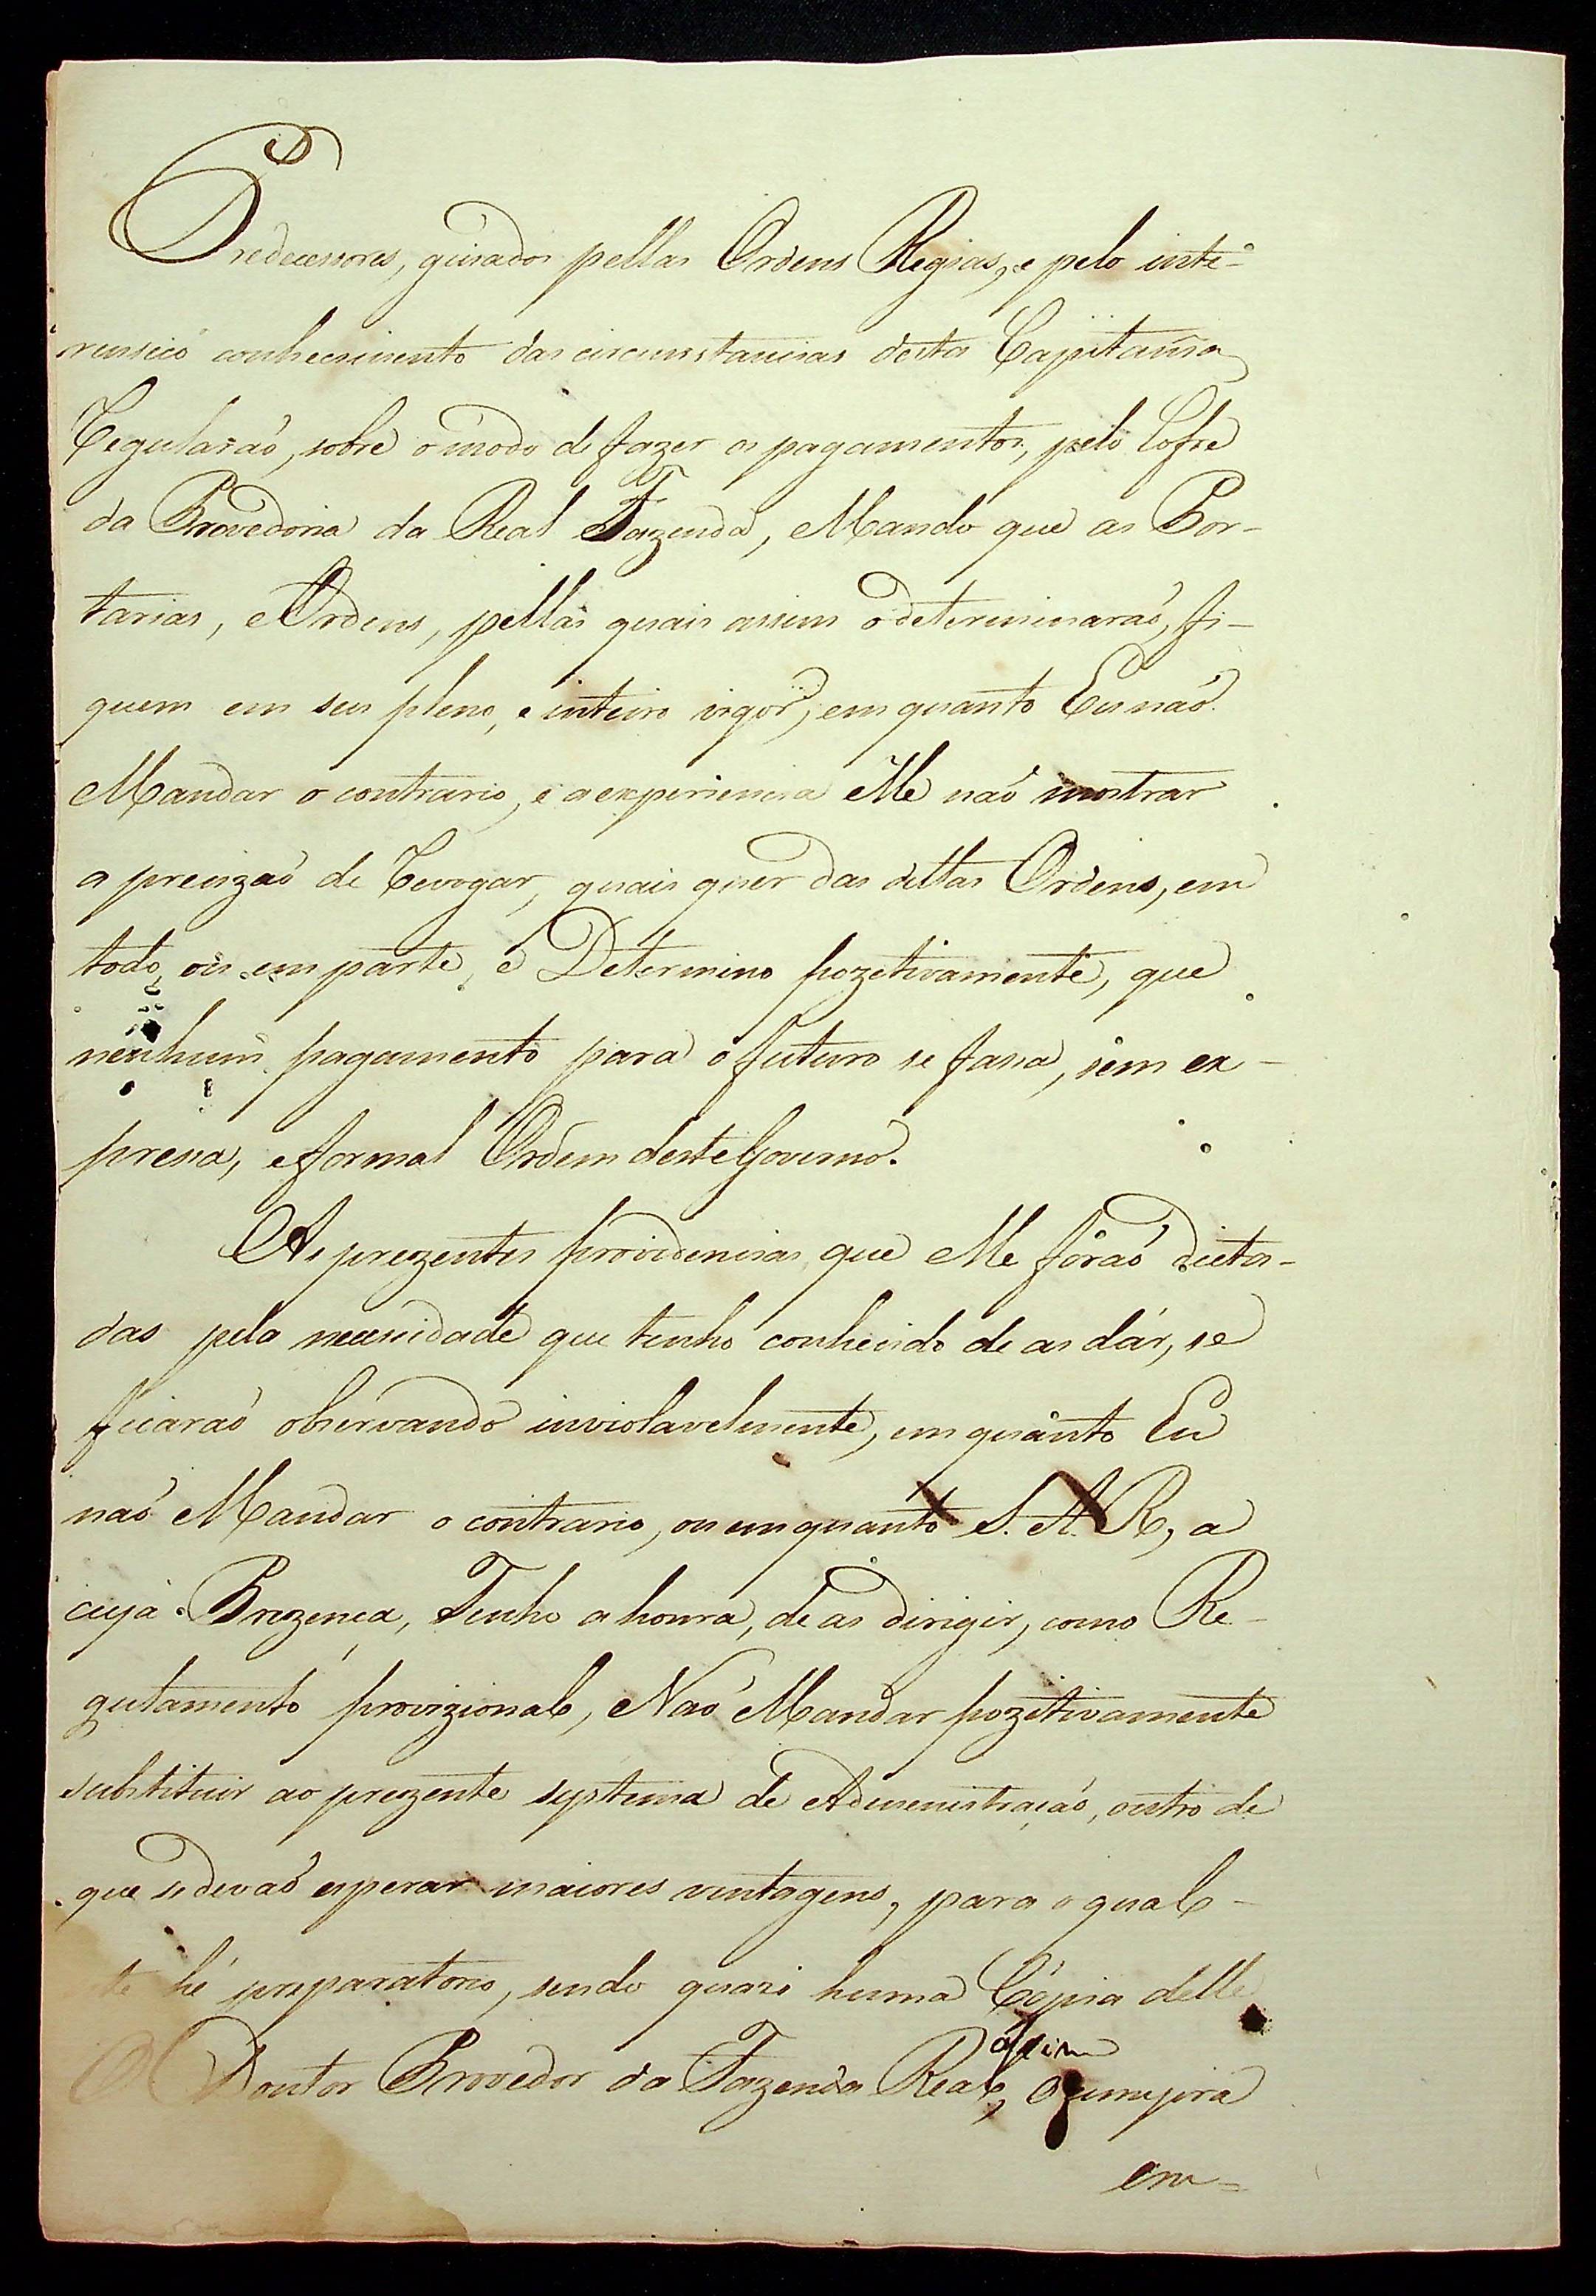 Predecessores, guiados pellas Ordens Regias, e pelo inte-
conhecimento das circunstancias desta Capitania
Regularaó, sobre o modo de fazer os pagamentos, pelo Cofre
da Provedoria da Real Fazenda, Mando que as Por-
tarias, e Ordens, pellas quais assim o determinaraó, fi-
quem em seu pleno, e inteiro vigor, em quanto Eu naó
Mandar o contrario, e a experiencia Me naó mostrar
a precizaó de Revogar, quais quer das dittas Ordens, em
todo, ou em parte, e Determino pozetivamente, que
nenhum pagamento para o futuro se fassa, sem ex-
pressa, e formal Ordem deste Governo.
As prezentes providencias, que Me foraó dicta-
das pela necessidade que tenho conhecido de as dár, se
ficaraó observando inviolavelmente, em quanto Eu
naó Mandar o contrario, ou em quanto S. A. R, a
cuja Prezenca, Tenho a honra, de as dirigir, como Re-
gulamento provizional, Naó Mandar pozetivamente
substituir ao prezente systema de Admenistraçaó, outro de
que se devaó esperar maiores ventagens, para o qual
te hé preparatorio, sendo quazi huma Cópia delle
O Doutor Provedor da Fazenda Real, assim o cumpira
em=